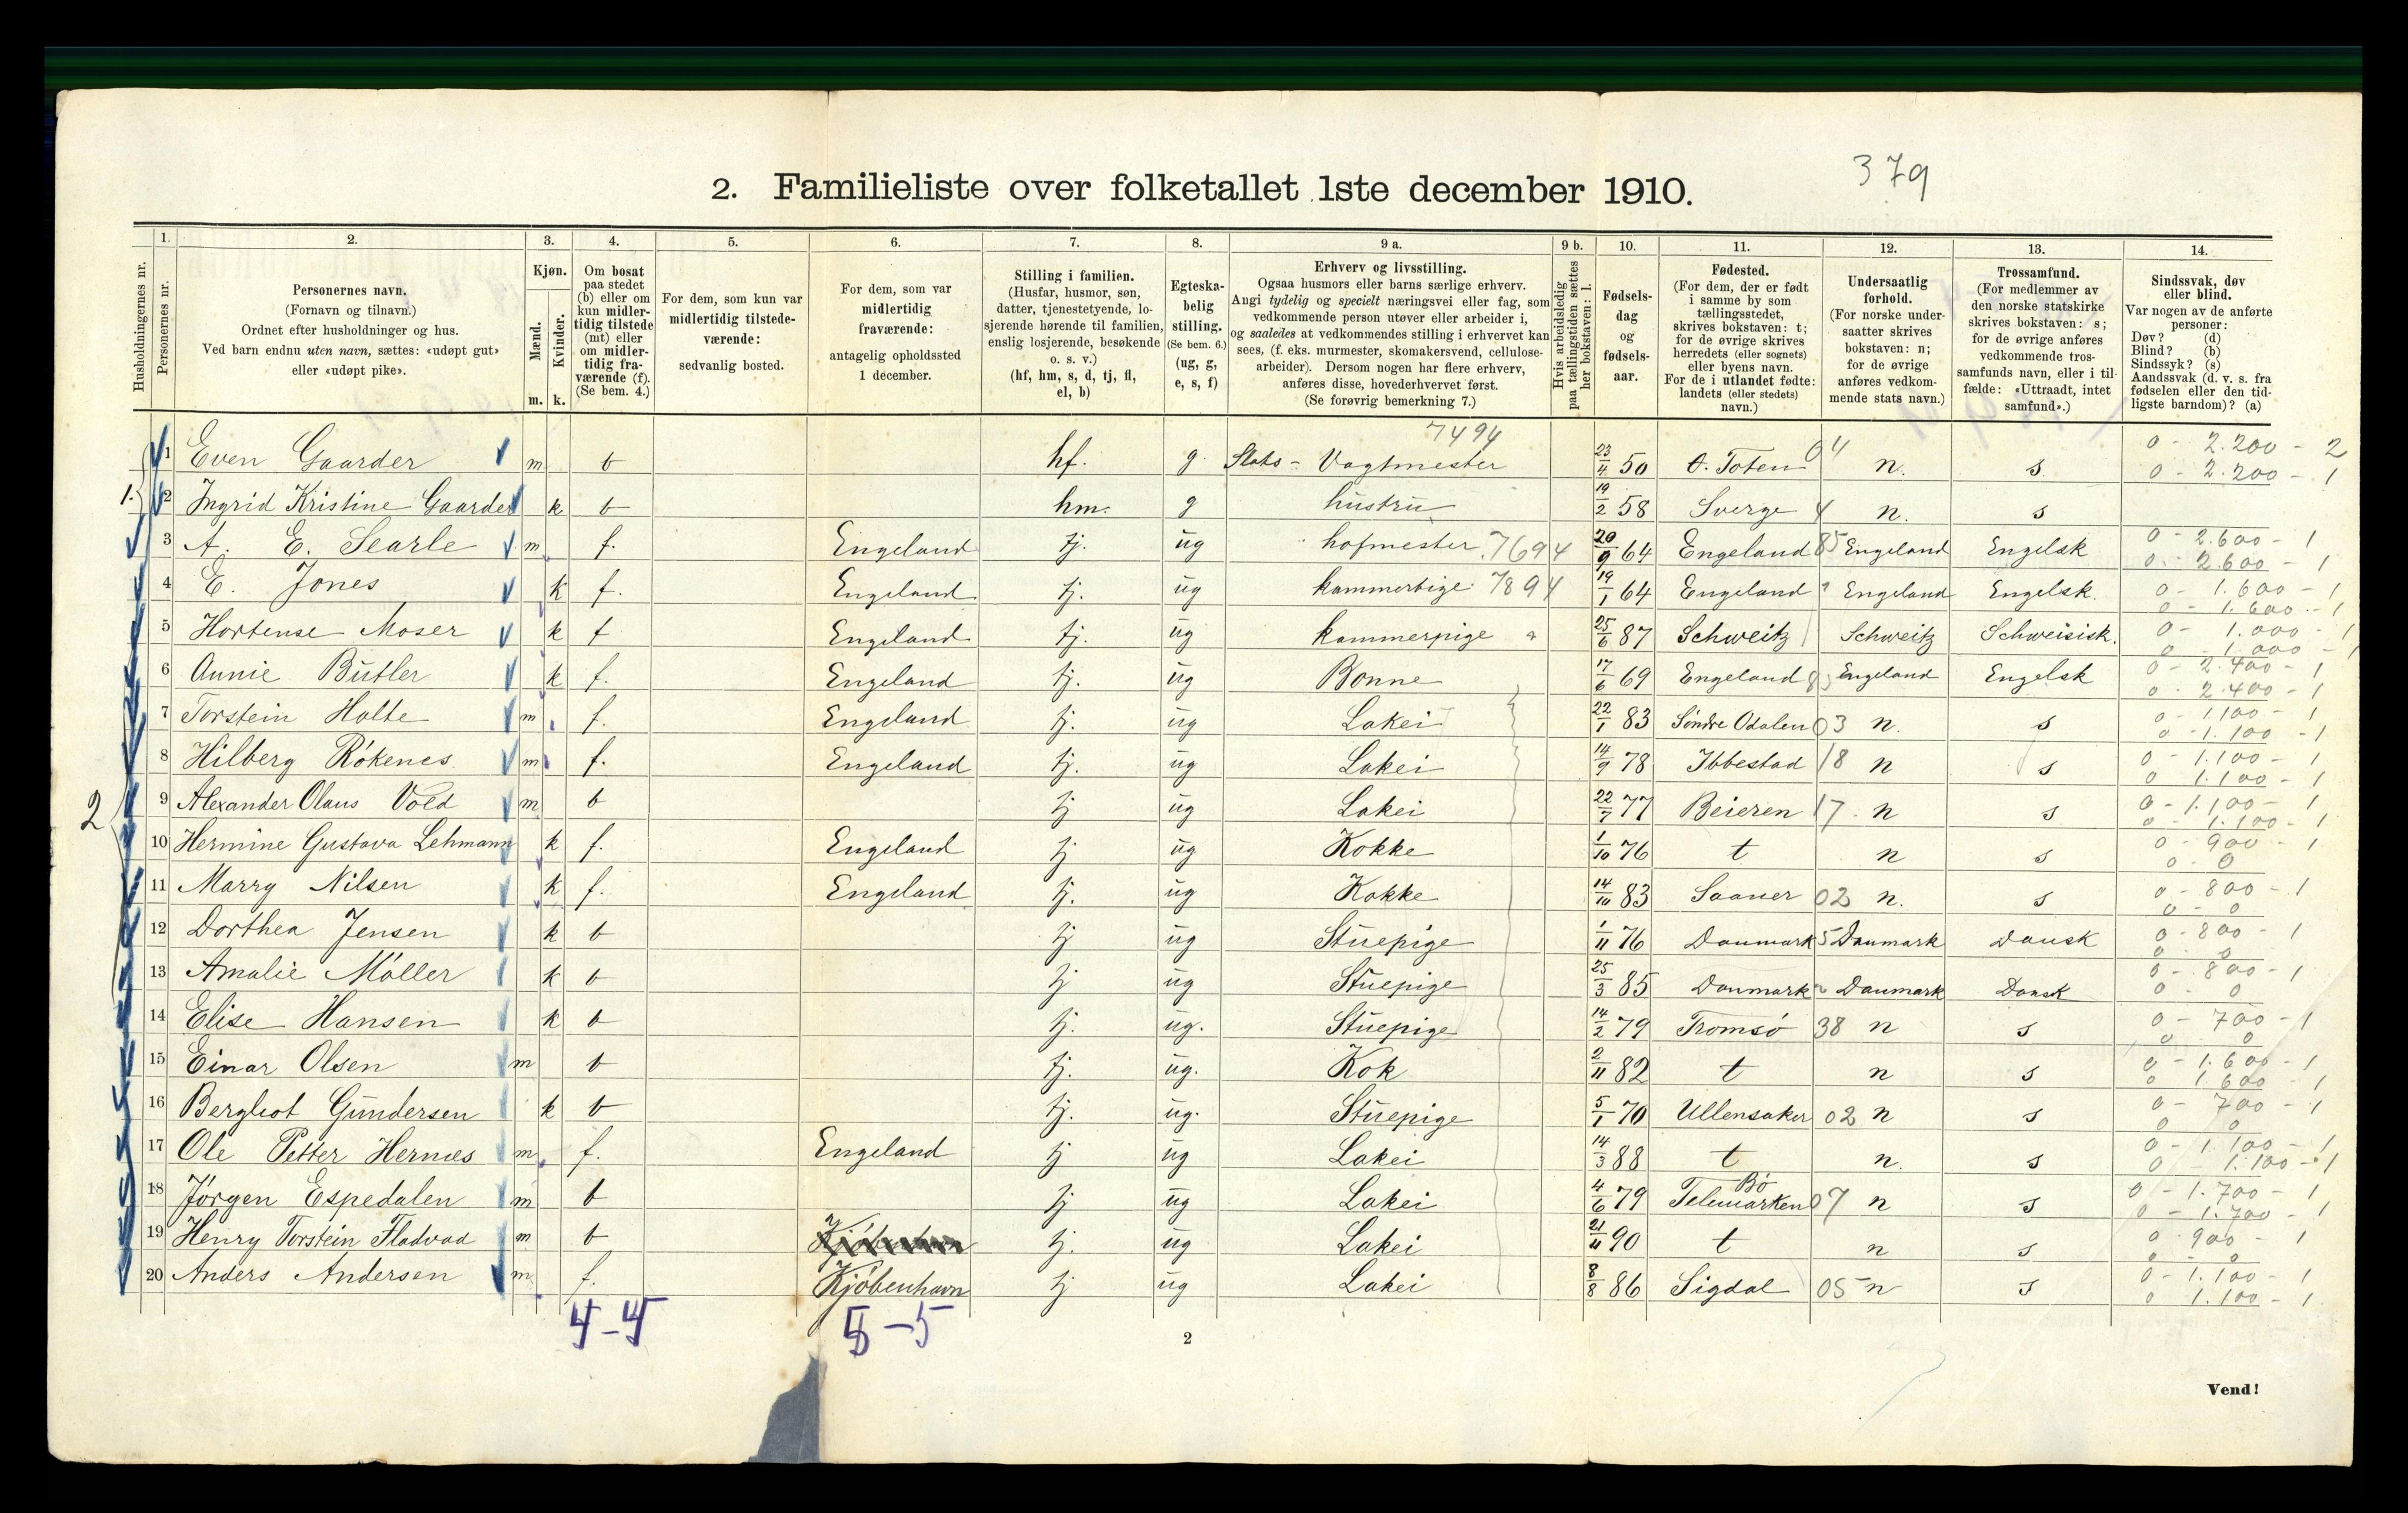 379
2. Familieliste over folketallet 1ste december 1910.
Husholdningernes nr.
1. Personernes nr.
2. Personernes navn. (Fornavn og tilnavn.) Ordnet efter husholdninger og hus. Ved barn endnu uten navn, sættes: «udøpt gut» eller «udøpt pike».
3. Kjøn. Mænd. m. Kvinder. k.
4. Om bosat paa stedet (b) eller om kun midlertidig tilstede (mt) eller om midlertidig fraværende (f). (Se bem. 4.)
5. For dem, som kun var midlertidig tilstedeværende: sedvanlig bosted.
6. For dem, som var midlertidig fraværende: antagelig opholdssted 1 december.
7. Stilling i familien. (Husfar, husmor, søn, datter, tjenestetyende, losjerende hørende til familien, enslig losjerende, besøkende o. s. v.) (hf, hm, s, d, tj, fl, el, b)
8. Egteskabelig stilling. (Se bem. 6.) (ug, g, e, s, f)
9 a. Erhverv og livsstilling. Ogsaa husmors eller barns særlige erhverv. Angi tydelig og specielt næringsvei eller fag, som vedkommende person utøver eller arbeider i, og saaledes at vedkommendes stilling i erhvervet kan sees, (f. eks. murmester, skomakersvend, cellulosearbeider). Dersom nogen har flere erhverv, anføres disse, hovederhvervet først. (Se forøvrig bemerkning 7.)
9 b. Hvis arbeidsledig paa tællingstiden sættes her bokstaven: l.
10. Fødselsdag og fødselsaar.
11. Fødested. (For dem, der er født i samme by som tællingsstedet, skrives bokstaven: t; for de øvrige skrives herredets (eller sognets) eller byens navn. For de i utlandet fødte: landets (eller stedets) navn.)
12. Undersaatlig forhold. (For norske undersaatter skrives bokstaven: n; for de øvrige anføres vedkommende stats navn.)
13. Trossamfund. (For medlemmer av den norske statskirke skrives bokstaven: s; for de øvrige anføres vedkommende trossamfunds navn, eller i tilfælde: «Uttraadt, intet samfund».)
14. Sindssvak, døv eller blind. Var nogen av de anførte personer: Døv? (d) Blind? (b) Sindssyk? (s) Aandssvak (d. v. s. fra fødselen eller den tidligste barndom)? (a)
1. 1 Even Gaarder m b hf. g. Stats-Vagtmester 7494 23/4 50 Ø. Toten 04 n. s 0 - 2.200 - 2 0 - 2.200 - 1
2 Ingrid Kristine Gaarder k b hm. g hustru 19/2 58 Sverge 4 n. s
2 3 A. E. Searle m f. Engeland tj. ug hofmester 7694 20/9 64 Engeland 85 Engeland Engelsk 0 - 2.600 - 1 0 - 2.600 - 1
4 E. Jones k f. Engeland tj. ug kammerpige 7894 19/1 64 Engeland " Engeland Engelsk 0 - 1.600 - 1 0 - 1.600 - 1
5 Hortense Moser k f Engeland tj. ug kammerpige 25/6 87 Schweitz Schweitz Schweisisk. 0 - 1.000 - 1 0 - 1.000 - 1
6 Annie Butler k f. Engeland tj. ug Bonne 17/6 69 Engeland 85 Engeland Engelsk 0 - 2.400 - 1 0 - 2.400 - 1
7 Torstein Holte m f. Engeland tj. ug Lakei 22/1 83 Söndre Odalen 03 n. s 0 - 1.100 - 1 0 - 1.100 - 1
8 Hilberg Rökenes m f. Engeland tj. ug Lakei 14/9 78 Ibbestad 18 n s 0 - 1.100 - 1 0 1.100 - 1
9 Alexander Olaus Vold m b tj ug Lakei 22/7 77 Beieren 17 n s 0 - 1.100 - 1 0 - 1.100 - 1
10 Hermine Gustava Lehmann k f. Engeland tj ug Kokke 1/10 76 t n s 0 - 900 - 1 0 - 0
11 Marry Nilsen k f. Engeland tj. ug Kokke 14/10 83 Saaner 02 n. s 0 - 800 - 1 0 - 0
12 Dorthea Jensen k b tj ug Stuepige 1/11 76 Danmark 5 Danmark Dansk 0 - 800 - 1 0 - 0
13 Amalie Möller k b tj ug Stuepige 25/3 85 Danmark " Danmark Dansk 0 - 800 - 1 0 - 0
14 Elise Hansen k b tj. ug. Stuepige 14/2 79 Tromsö 38 n s 0 - 700 - 1 0 0
15 Einar Olsen m b tj. ug. Kok 2/11 82 t n s 0 - 1.600 - 1 0 1.600 - 1
16 Bergliot Gundersen k b tj. ug. Stuepige 5/1 70 Ullensaker 02 n s 0 - 700 - 1 0 0
17 Ole Petter Hernes m f. Engeland tj ug Lakei 14/3 88 t n. s 0 - 1.100 - 1 0 - 1.100 - 1
18 Jörgen Espedalen m b tj ug Lakei 4/6 79 Bö Telemarken 07 n s 0 - 1.700 - 1 0 - 1.700 - 1
19 Henry Torstein Fladvad m b tj. ug Lakei 21/11 90 t n s 0 900 - 1 0 - 0
20 Anders Andersen m. f. Kjöbenhavn tj ug Lakei 8/8 86 Sigdal 05 n s 0 - 1.100 - 1 0 1.100 - 1
4-4 5-5
2
Vend!